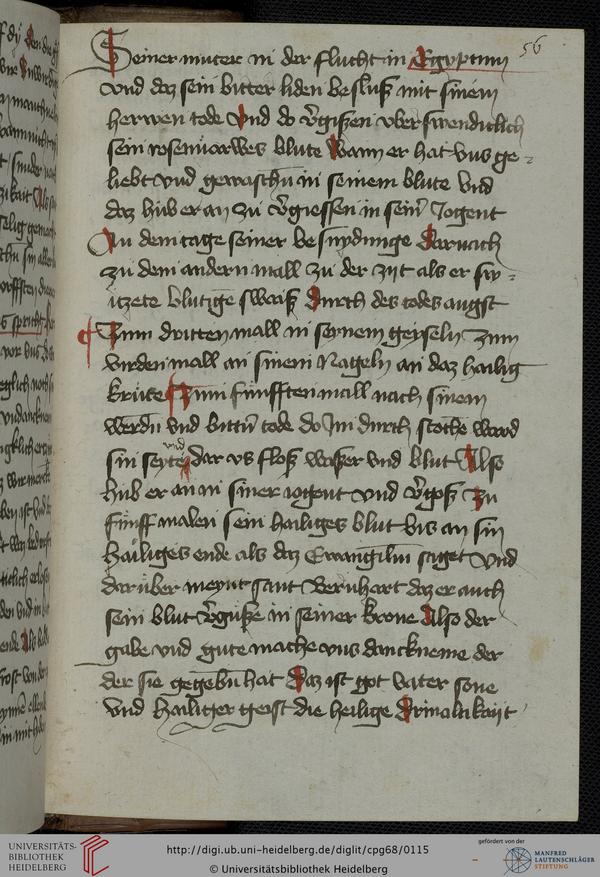 56
Seiner muter in der flucht in Egyptum
vnd daz sein bitter liden besluß mit sinem
herwen tode Vnd do v'gißen vberswendiclich
sein rosenuorwes blute Wann er hat vns ge=
liebt vnd gewaschn̄ in seinem blute vnd
daz hub er an zu v'giessen in sein' Jogent
An dem tage seiner besnydunge Darnach
zu dem andern mall zu der zyt als er swi=
itzete blutigē sweiß Durch des todes angst
Zum dritten mall in seynem geyseln Zum
virden mall an sinem Nageln an daz hailig
krutze Zum funfften mall nach sinem
werdn̄ vnd bittn̄ tode do Jm durch stochē ward
sin seyte vnd dar vs floß waßer vnd blut Also
hub er an in siner iogent vnd v'goß Zu
funff malen sein hailiges blut bis an sin
hailiges ende als daz Ewangiliū saget Vnd
daruber meynt sant Bernhart daz er auch
sein blut v'guße in seiner krone Also der
gabe vnd gute mache vns danckneme der
der sie gegebn̄ hat Daz ist got vater sone
vnd hailiger geist die heilige Driualtikayt
UNIVERSITÄTS-
BIBLIOTHEK
HEIDELBERG
http://digi.ub.uni-heidelberg.de/diglit/cpg68/0115
© Universitätsbibliothek Heidelberg
gefördert von der
MANFRED
LAUTENSCHLÄGER
STIFTUNG